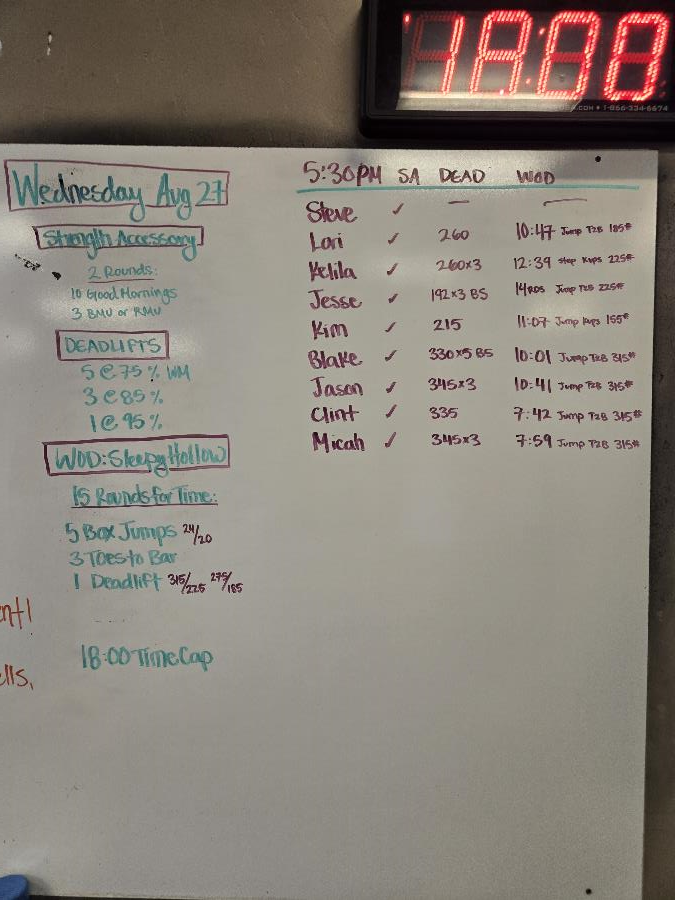 18:00
1-866-334-6674
Wednesday Aug 27
Strength Accessory
2 Rounds:
10 Good Mornings
3 BMU or RMU
DEADLIFTS
5 @ 75% WM
3 @ 85%
1 @ 95%
WOD: Sleepy Hollow
15 Rounds for Time:
5 Box Jumps 24/20
3 Toes to Bar
1 Deadlift 315/225 275/185
18:00 Time Cap
5:30PM SA DEAD WOD
Steve ✓ — —
Lori ✓ 260 10:47 Jump T2B 185#
Kelila ✓ 260x3 12:39 Step Kups 225#
Jesse ✓ 192x3 BS 14RDS Jump T2B 225#
Kim ✓ 215 11:07 Jump Kups 155#
Blake ✓ 330x5 BS 10:01 Jump T2B 315#
Jason ✓ 345x3 10:41 Jump T2B 315#
Clint ✓ 335 7:42 Jump T2B 315#
Micah ✓ 345x3 7:59 Jump T2B 315#